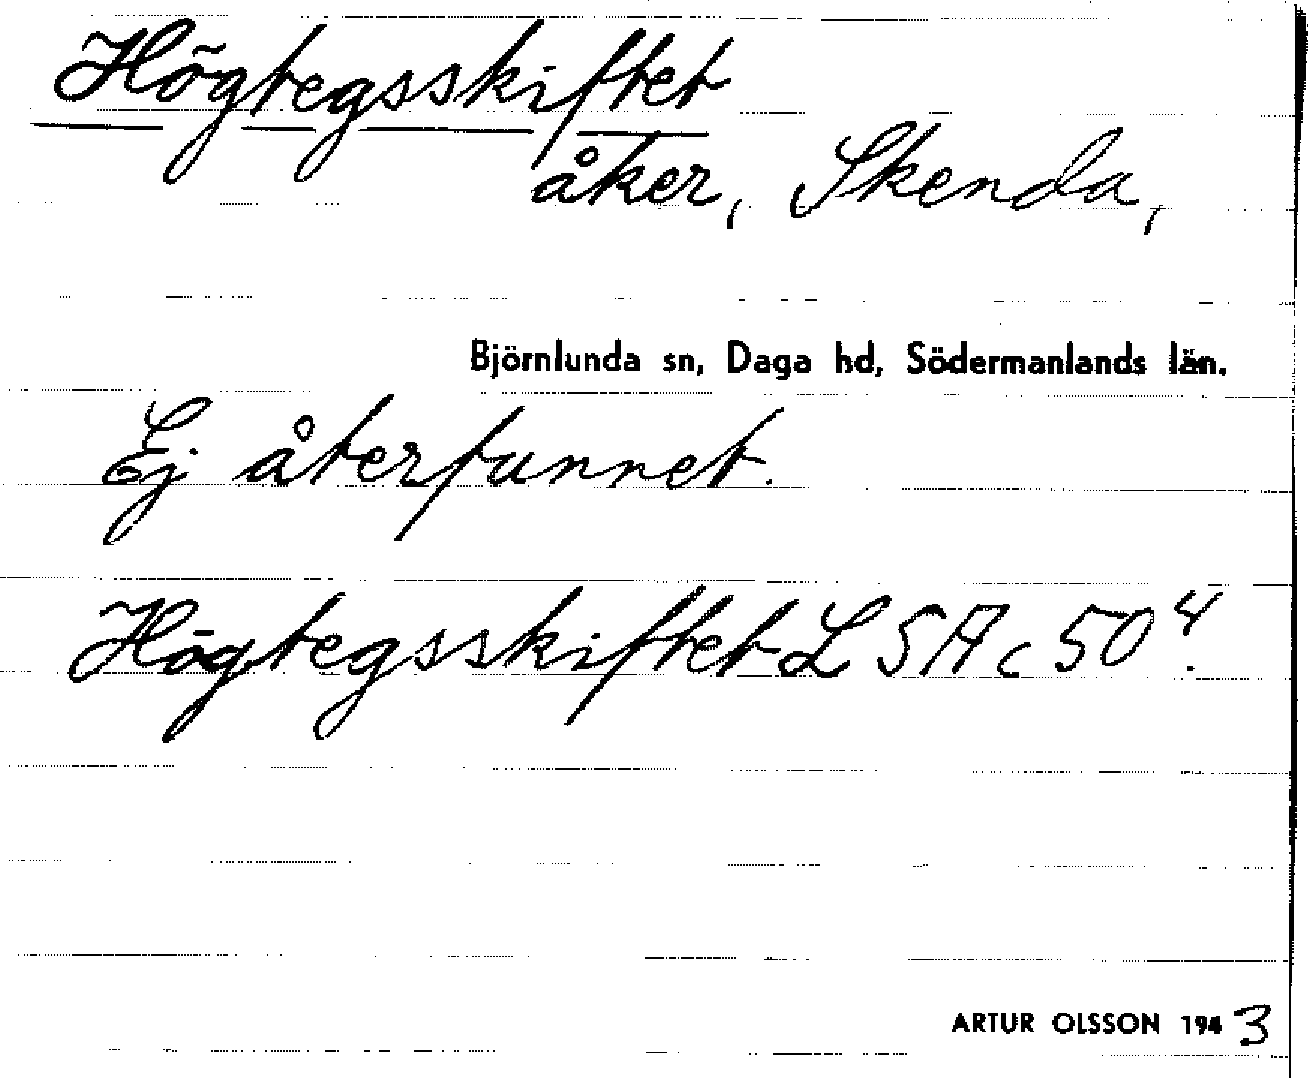 Högtegsskiftet
åker, Skenda,
Björnlunda sn, Daga hd, Södermanlands län.
Ej återfunnet.
Högtegsskiftet LSA c 50⁴.
ARTUR OLSSON 1943